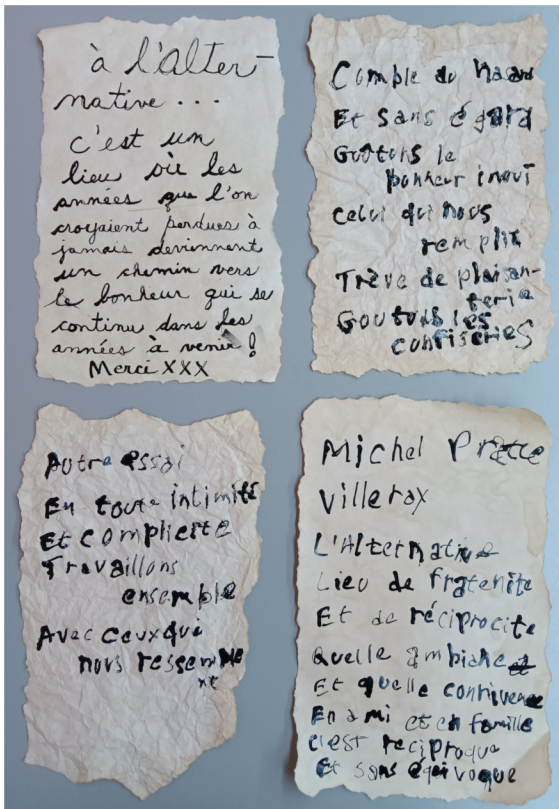 à l'alter-
native...
c'est un
lieu où les
années que l'on
croyaient perdues à
jamais deviennent
un chemin vers
le bonheur qui se
continu dans les
années à venir !
Merci XXX
Comble du hasard
Et sans égard
Goûtons le
bonheur inouï
Celui qui nous
remplit
Trève de plaisan-
terie
Goutons les
confiseries
Autre essai
En toute intimité
Et complicité
Travaillons
ensemble
Avec ceux qui
nous ressemble
nt
Michel Pratte
Villeray
L'Alternative
Lieu de fratenité
Et de réciprocité
Quelle ambiance
Et quelle connivence
En ami et en famille
c'est réciproque
Et sans équivoque